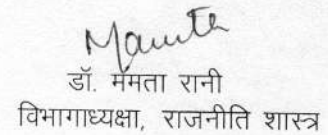 Mamta
डॉ. ममता रानी
विभागाध्यक्षा, राजनीति शास्त्र